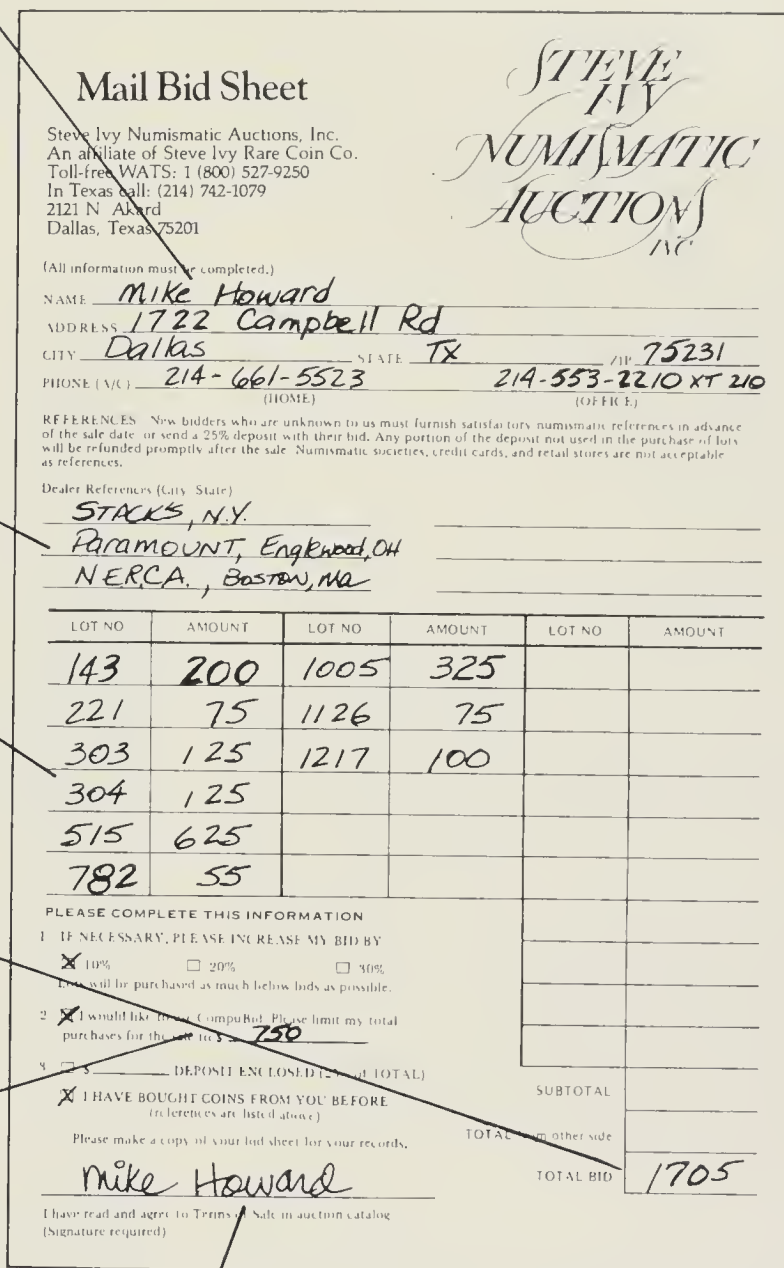 Mail Bid Sheet
STEVE
IVY
NUMISMATIC
AUCTIONS
INC
Steve Ivy Numismatic Auctions, Inc.
An affiliate of Steve Ivy Rare Coin Co.
Toll-free WATS: 1 (800) 527-9250
In Texas call: (214) 742-1079
2121 N Akard
Dallas, Texas 75201
(All information must be completed.)
NAME Mike Howard
ADDRESS 1722 Campbell Rd
CITY Dallas STATE TX ZIP 75231
PHONE (A/C) 214-661-5523 214-553-2210 XT 210
(HOME) (OFFICE)
REFERENCES New bidders who are unknown to us must furnish satisfactory numismatic references in advance
of the sale date or send a 25% deposit with their bid. Any portion of the deposit not used in the purchase of lots
will be refunded promptly after the sale Numismatic societies, credit cards, and retail stores are not acceptable
as references.
Dealer References (City State)
STACK'S, N.Y.
Paramount, Englewood, OH
N.E.R.C.A., Boston, Ma
LOT NO AMOUNT LOT NO AMOUNT LOT NO AMOUNT
143 200 1005 325
221 75 1126 75
303 125 1217 100
304 125
515 625
782 55
PLEASE COMPLETE THIS INFORMATION
1 IF NECESSARY, PLEASE INCREASE MY BID BY
10% 20% 30%
Lots will be purchased as much below bids as possible.
2 I would like to use CompuBid. Please limit my total
purchases for the sale to $ 750
3 $ DEPOSIT ENCLOSED (25% of TOTAL)
I HAVE BOUGHT COINS FROM YOU BEFORE
(references are listed above)
Please make a copy of your bid sheet for your records.
SUBTOTAL
TOTAL from other side
TOTAL BID 1705
Mike Howard
I have read and agree to Terms of Sale in auction catalog
(Signature required)